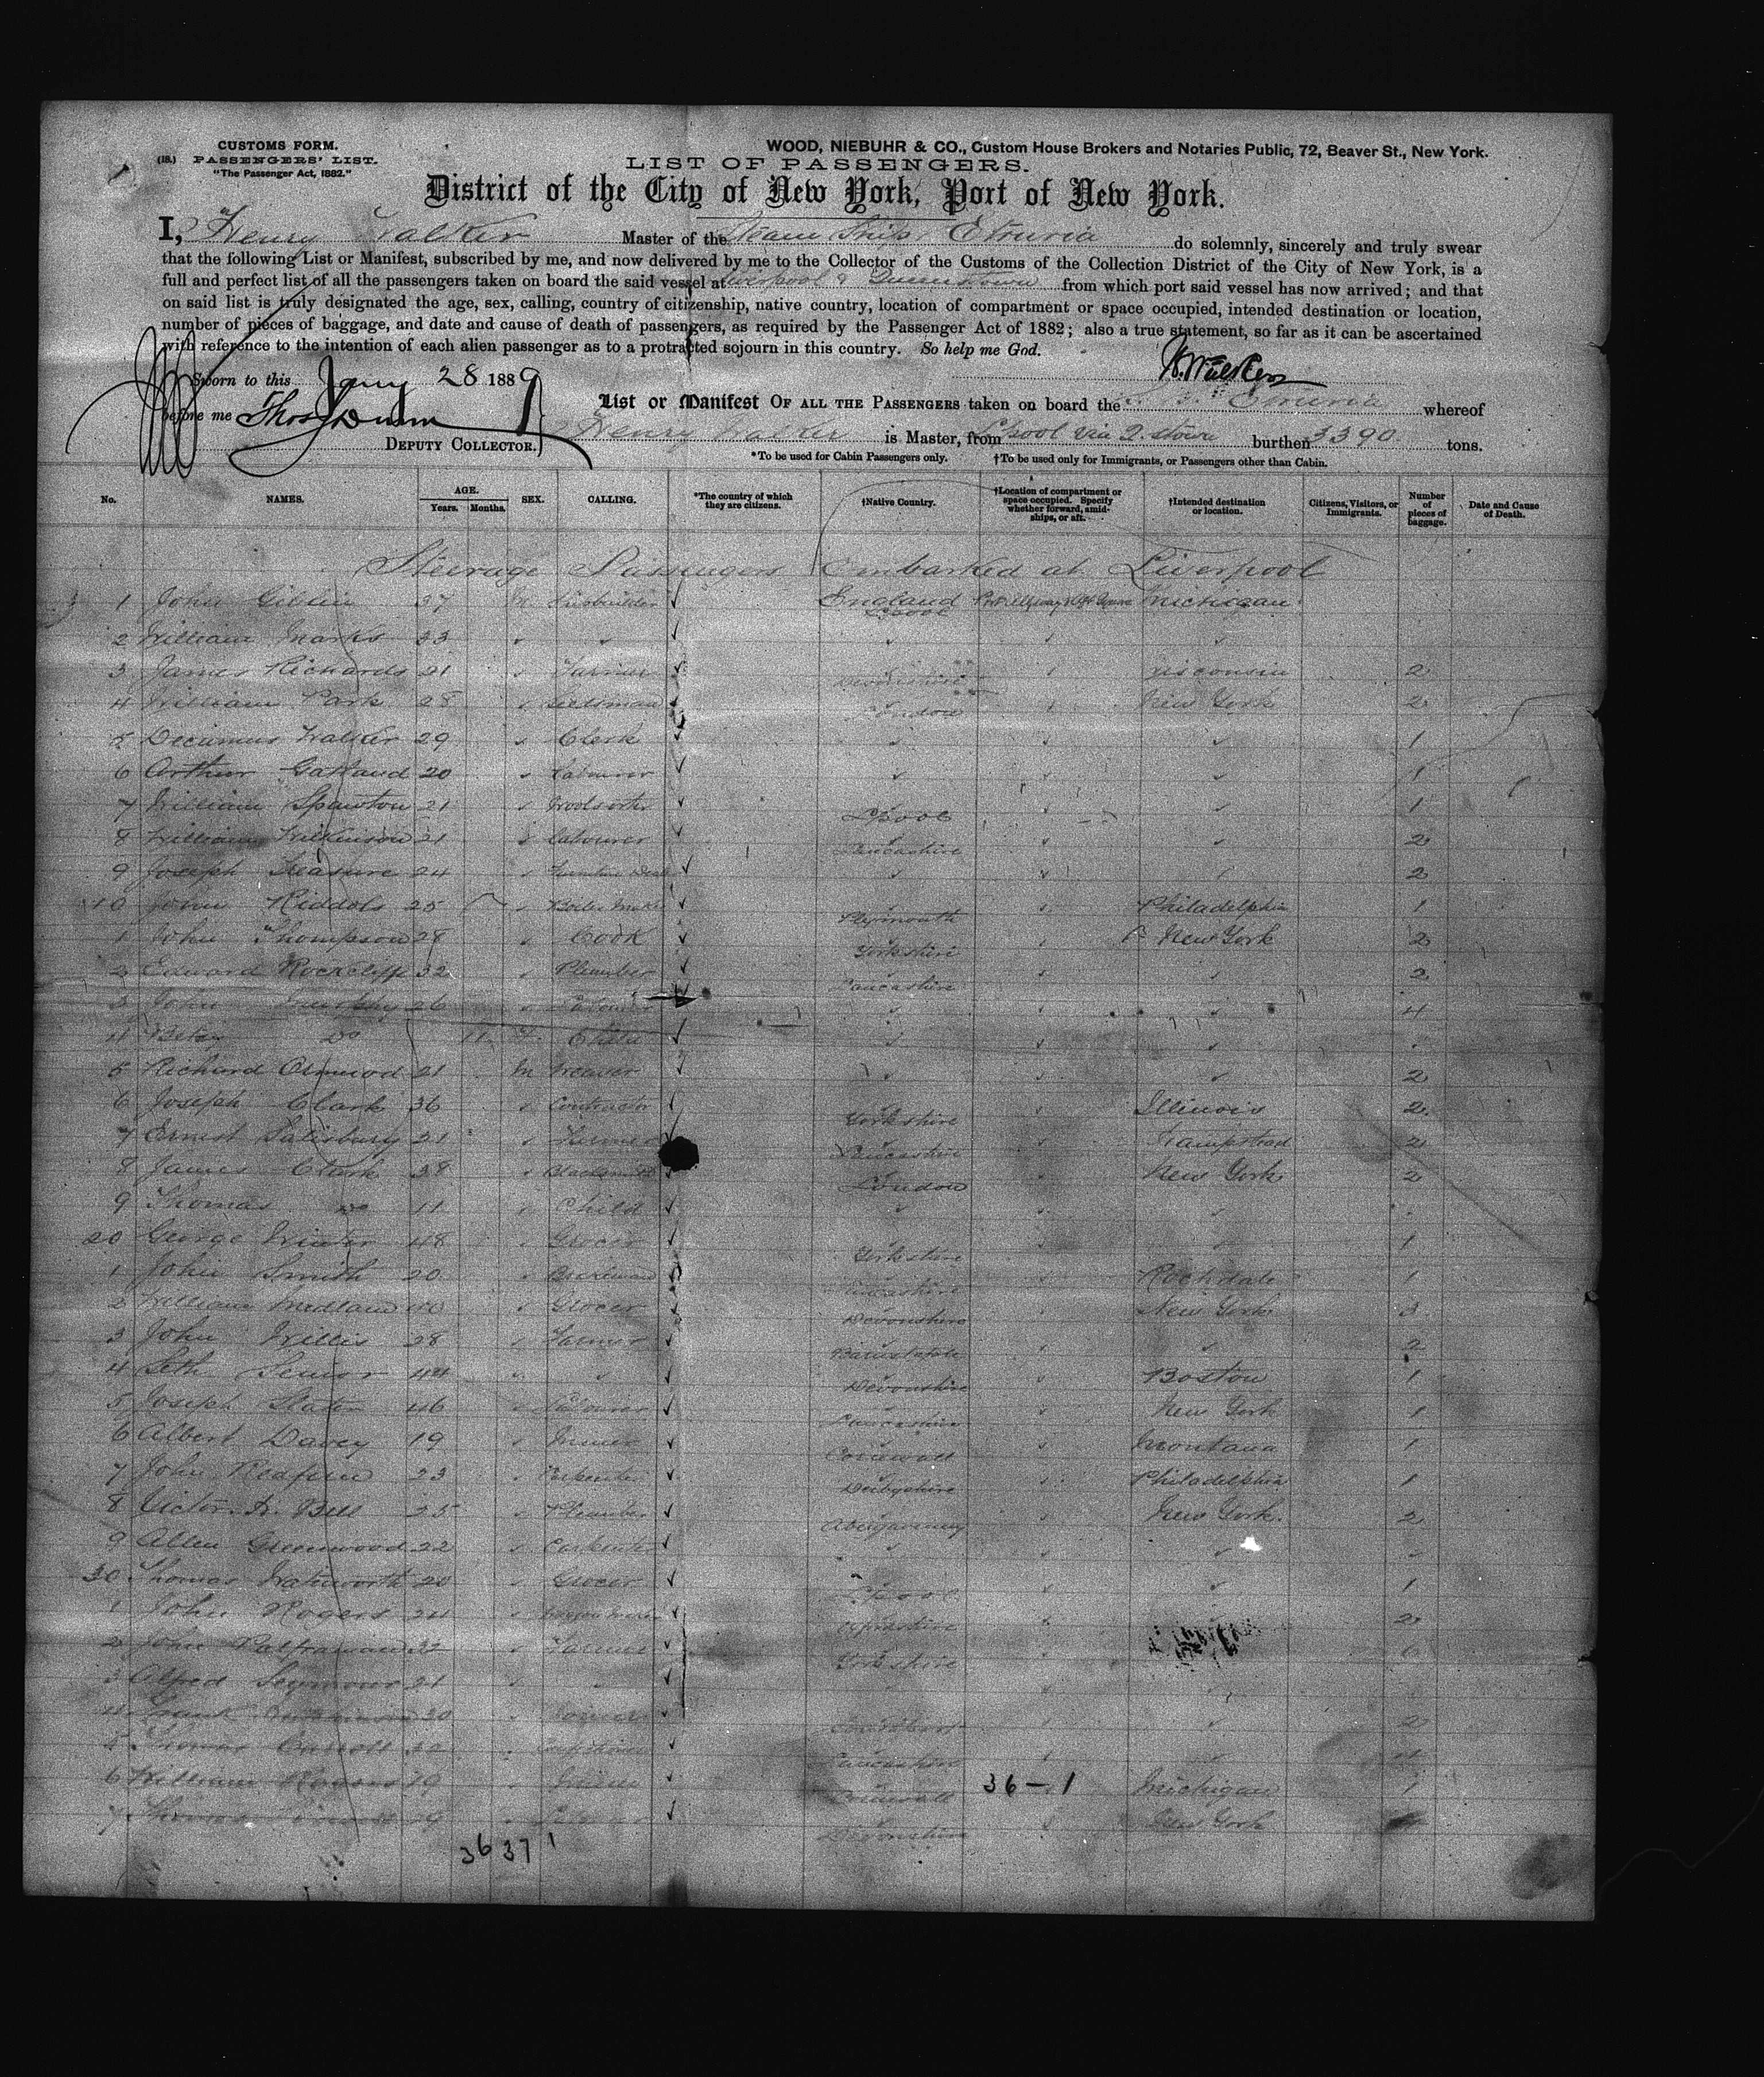 CUSTOMS FORM.
(18.) PASSENGERS' LIST.
"The Passenger Act, 1882."
WOOD, NIEBUHR & CO., Custom House Brokers and Notaries Public, 72, Beaver St., New York.
LIST OF PASSENGERS.
District of the City of New York, Port of New York.
I, Henry Walker Master of the Steam Ship Etruria do solemnly, sincerely and truly swear
that the following List or Manifest, subscribed by me, and now delivered by me to the Collector of the Customs of the Collection District of the City of New York, is a
full and perfect list of all the passengers taken on board the said vessel at Liverpool & Queenstown from which port said vessel has now arrived; and that
on said list is truly designated the age, sex, calling, country of citizenship, native country, location of compartment or space occupied, intended destination or location,
number of pieces of baggage, and date and cause of death of passengers, as required by the Passenger Act of 1882; also a true statement, so far as it can be ascertained
with reference to the intention of each alien passenger as to a protracted sojourn in this country. So help me God.
H. Walker
Sworn to this Jany 28 1889
before me Thos
DEPUTY COLLECTOR.
List or Manifest OF ALL THE PASSENGERS taken on board the S. S. Etruria whereof
Henry Walker is Master, from L'pool via Q. stown burthen 3390 tons.
*To be used for Cabin Passengers only. †To be used only for Immigrants, or Passengers other than Cabin.
No. NAMES. AGE. Years. Months. SEX. CALLING. *The country of which they are citizens. †Native Country. †Location of compartment or space occupied. Specify whether forward, amid-ships, or aft. †Intended destination or location. Citizens, Visitors, or Immigrants. Number of pieces of baggage. Date and Cause of Death.
Steerage Passengers Embarked at Liverpool
1 John Giblin 37 M England L'pool Michigan
2 William Marks 33
3 James Richards 21 Wisconsin 2
4 William Park 28 London New York 2
5 Decimus Walker 29 Clerk 1
6 Arthur Garland 20 Labourer 1
7 William Spawton 21 Woolsorter L'pool 1
8 William Wilkinson 21 Labourer Lancashire 2
9 Joseph Treasure 24 2
10 John Riddols 25 Boiler Maker Plymouth Philadelphia 1
1 John Thompson 28 Cook Yorkshire New York 2
2 Edward Rockcliffe 32 Plumber Lancashire 2
3 John Murphy 26 Labourer 4
4 Betsy do 11 F Child
5 Richard Ormerod 21 M Weaver 2
6 Joseph Clark 36 Contractor Yorkshire Illinois 2
7 Ernest Salisbury 21 Farmer Lancashire Hampstead 2
8 James Clark 38 Blacksmith London New York 2
9 Thomas do 11 Child
20 George Winter 48 Grocer Yorkshire 1
1 John Smith 20 Lancashire Rochdale 1
2 William Medland 40 Grocer Devonshire New York 3
3 John Willis 28 Farmer Barnstaple 2
4 Seth Senior 44 Devonshire Boston 1
5 Joseph Slater 46 Labourer Lancashire New York 1
6 Albert Davey 19 Miner Cornwall Montana 1
7 John Redfern 23 Carpenter Derbyshire Philadelphia 1
8 Victor. A. Bell 25 Plumber Abergavenny New York. 2
9 Allen Greenwood 22 Carpenter
30 Thomas 20 Grocer L'pool 1
1 John Rogers 24 2
2 John 32 Farmer Yorkshire 6
3 Alfred Seymour 21
4 Frank 20 2
5 Thomas Carroll 22 Lancashire
6 William Rogers 19 Miner Cornwall 36 – 1 Michigan 1
7 Thomas Devonshire New York
36 37 1